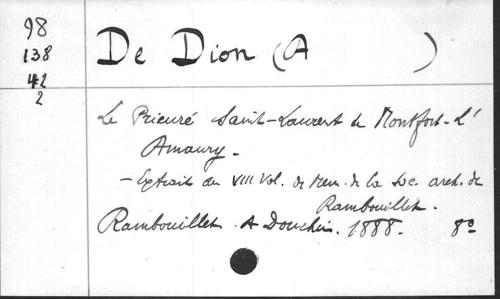 98
138
42
2
De Dion (A )
Le Prieuré Saint-Laurent de Montfort-L'
Amaury -
- Extrait du VIII Vol. de Mem. de la Soc. arch. de
Rambouillet.
Rambouillet. A Douchin. 1888. 8°